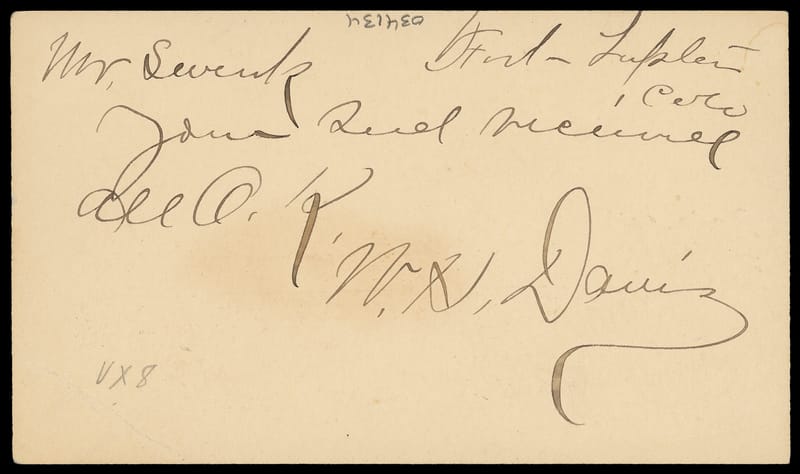 034134
Mr. Swink Fort Lupton
Colo
Your seed received
all O. K.
W. H. Davis
VX8